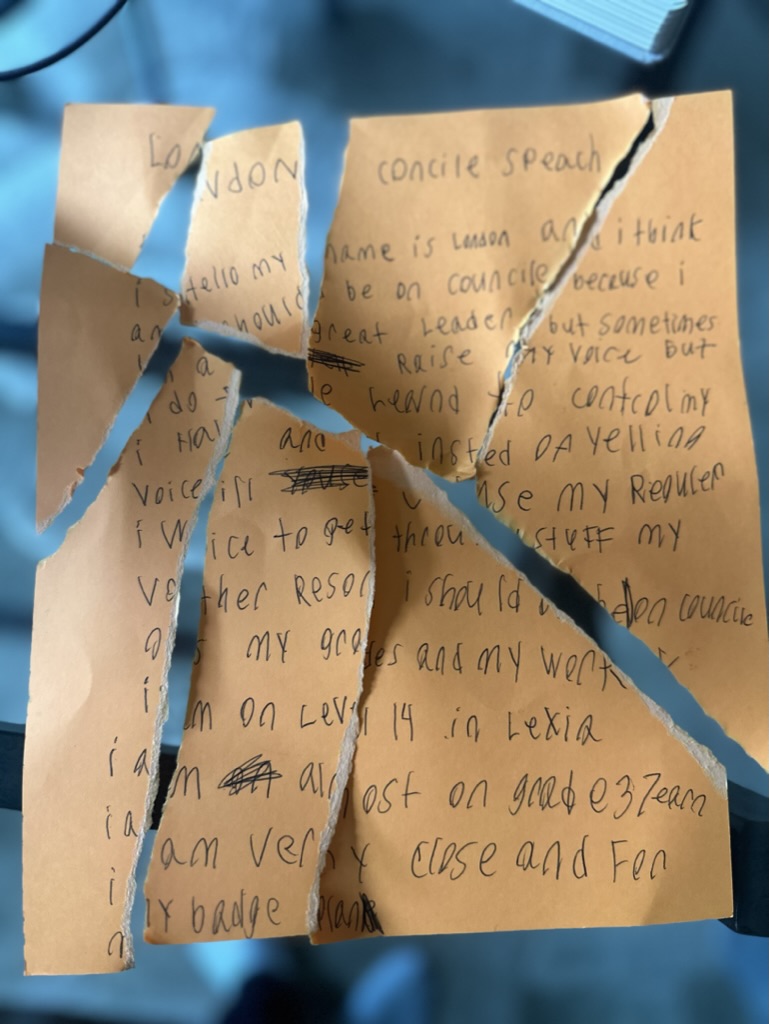 London concile speach
Hello my name is London and i think
i should be on councile because i
am a great Leader but sometimes
i do Raise my voice but
i Have learnd to control my
voice and insted of yelling
i will use my Reguler
voice to get through stuff my
other Reson i should be on councile
is my grades and my work
i am on Level 14 in Lexia
i am almost on grade 3 Zearn
i am very close and For
my badge